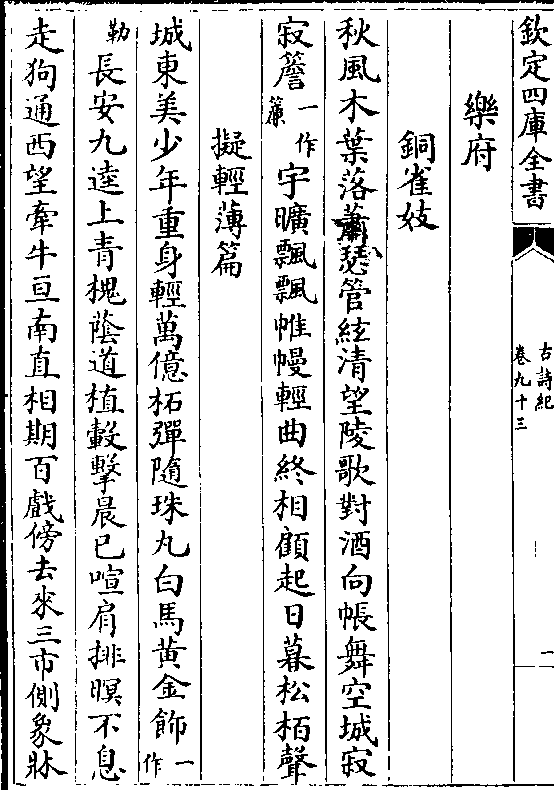 欽定四庫全書
古詩紀
卷九十三
一
樂府
銅雀妓
秋風木葉落蕭瑟管絃清望陵歌對酒向帳舞空城寂
寂簷一作簾宇曠飄飄帷幔輕曲終相顧起日暮松栢聲
擬輕薄篇
城東美少年重身輕萬億柘彈隨珠丸白馬黄金飾一作
勒長安九逵上青槐蔭道植轂擊晨已喧肩排暝不息
走狗通西望牽牛亘南直相期百戲傍去來三市側象牀